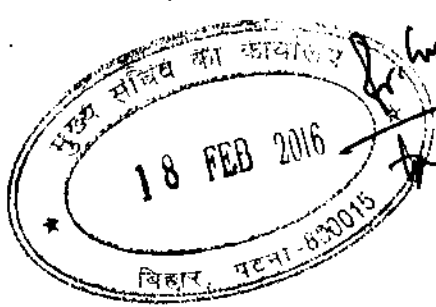 मुख्य सचिव का कार्यालय
18 FEB 2016
बिहार, पटना-800015